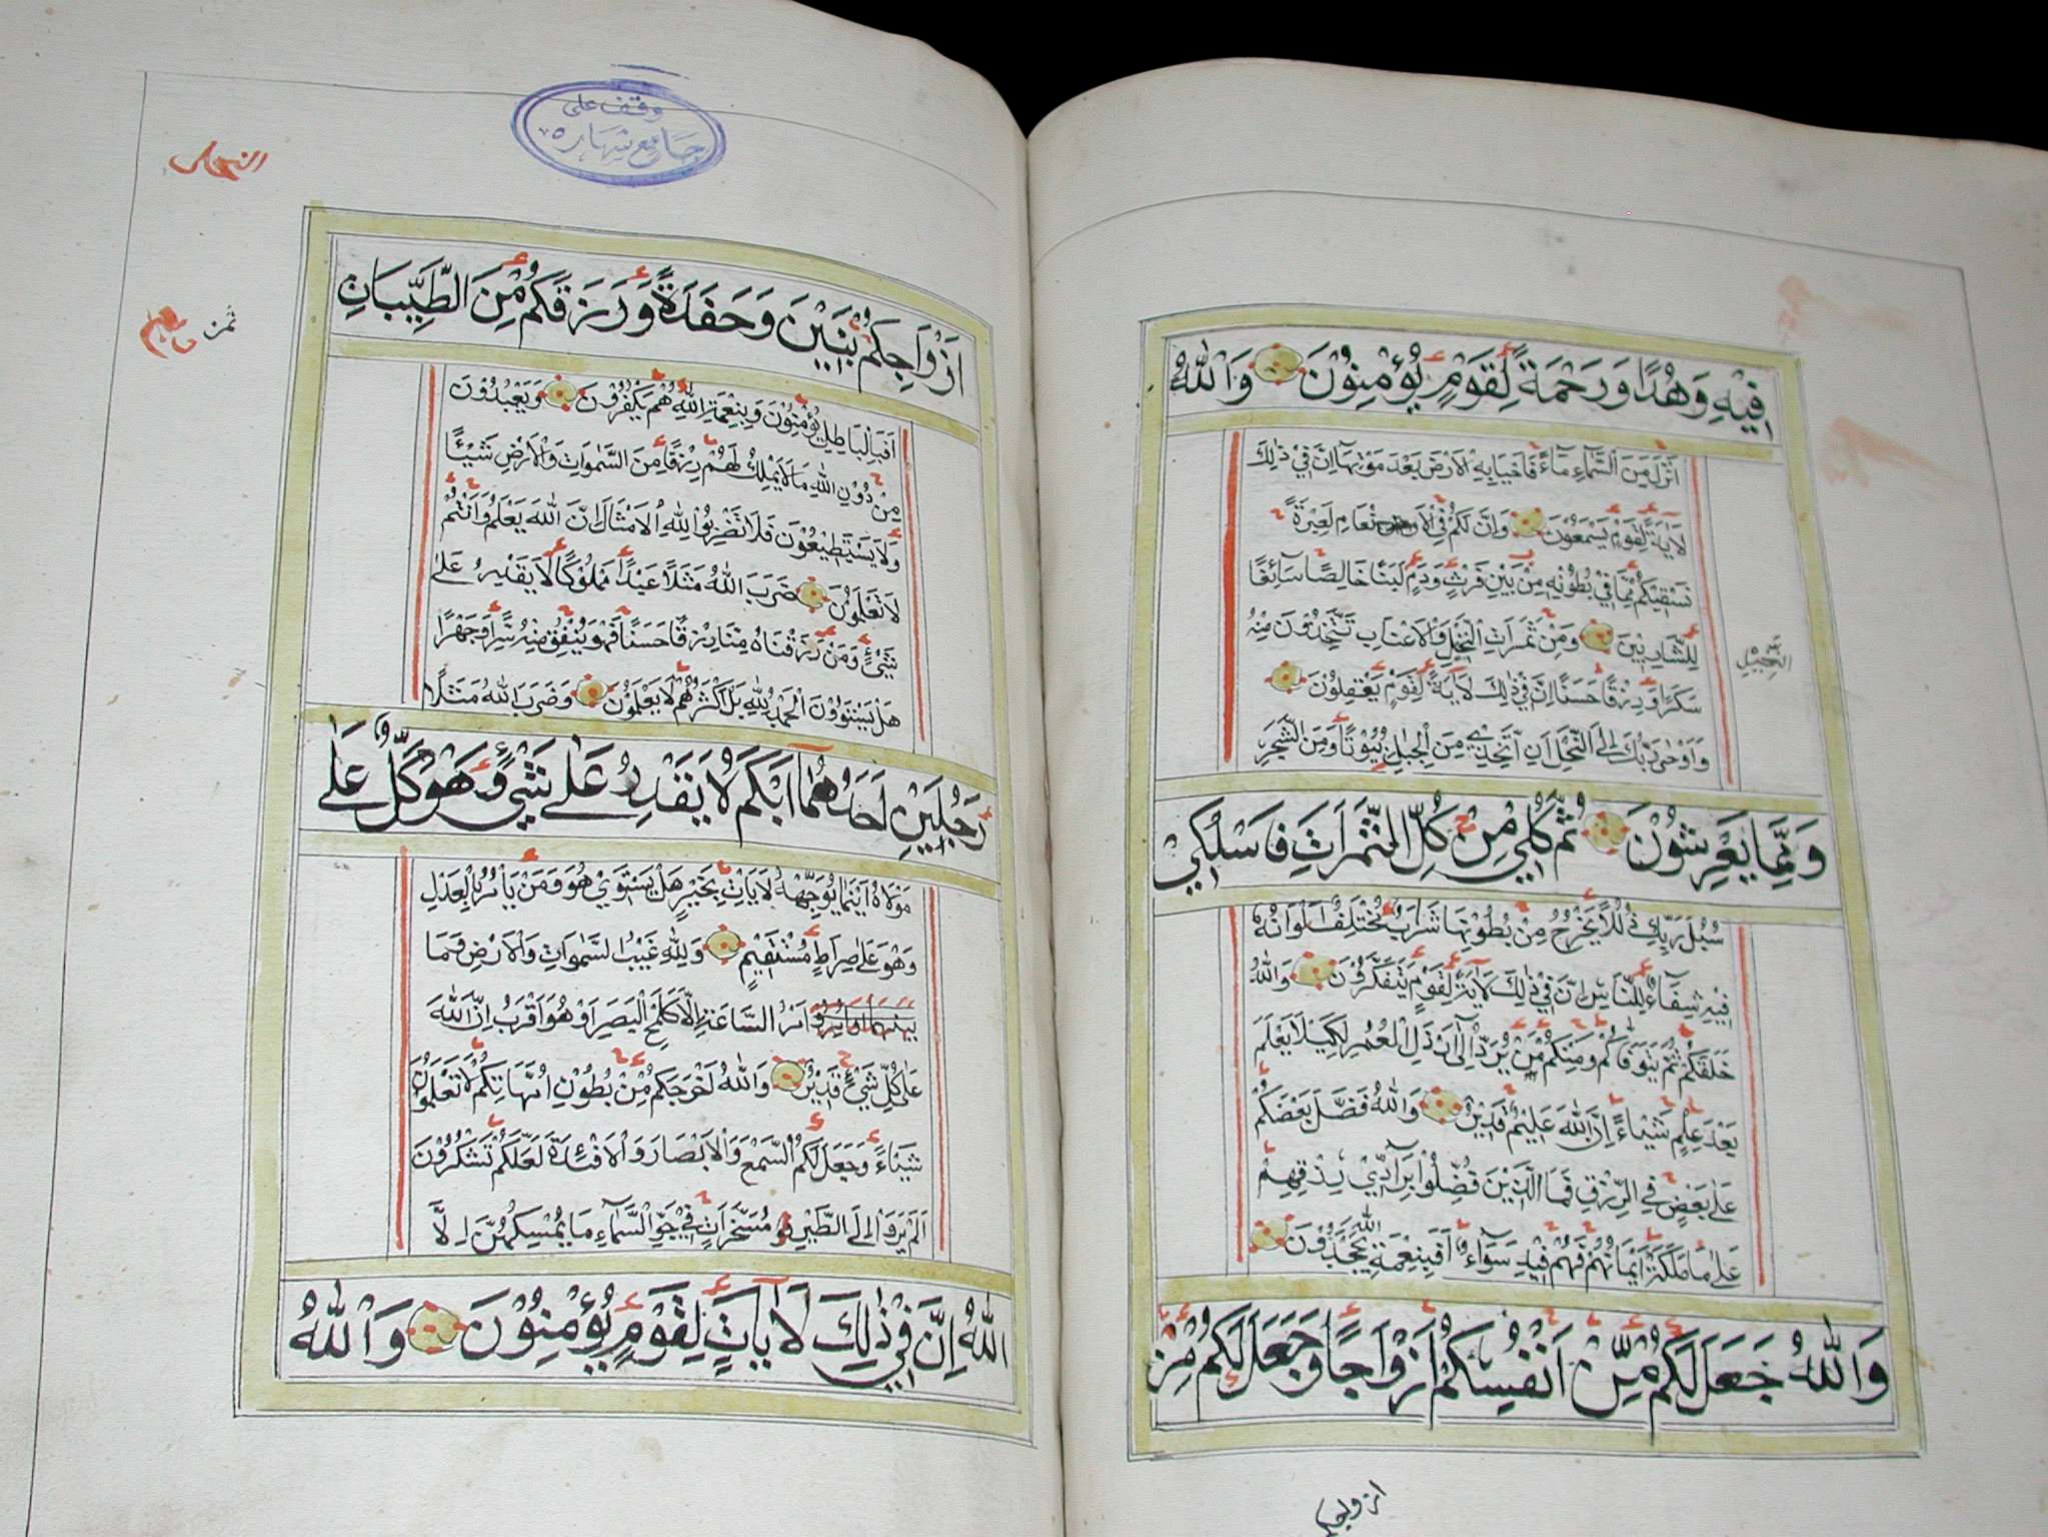 فِيْهِ وَهُدًا وَرَحْمَةً لِّقَوْمٍ يُؤْمِنُوْنَ وَاللّٰهُ
اَنْزَلَ مِنَ السَّمَاءِ مَآءً فَاَحْيَا بِهِ الْاَرْضَ بَعْدَ مَوْتِهَآ اِنَّ فِيْ ذٰلِكَ
لَاٰيَةً لِّقَوْمٍ يَسْمَعُوْنَ وَاِنَّ لَكُمْ فِي الْاَنْعَامِ لَعِبْرَةً
نُسْقِيْكُمْ مِّمَّا فِيْ بُطُوْنِهِ مِنْ بَيْنِ فَرْثٍ وَّدَمٍ لَّبَنًا خَالِصًا سَآئِغًا
لِلشَّارِبِيْنَ وَمِنْ ثَمَرَاتِ النَّخِيْلِ وَالْاَعْنَابِ تَتَّخِذُوْنَ مِنْهُ
النَّخِيْلِ
سَكَرًا وَّرِزْقًا حَسَنًا اِنَّ فِيْ ذٰلِكَ لَاٰيَةً لِّقَوْمٍ يَعْقِلُوْنَ
وَاَوْحٰى رَبُّكَ اِلَى النَّحْلِ اَنِ اتَّخِذِيْ مِنَ الْجِبَالِ بُيُوْتًا وَّمِنَ الشَّجَرِ
وَمِمَّا يَعْرِشُوْنَ ثُمَّ كُلِيْ مِنْ كُلِّ الثَّمَرَاتِ فَاسْلُكِيْ
سُبُلَ رَبِّكِ ذُلُلًا يَخْرُجُ مِنْ بُطُوْنِهَا شَرَابٌ مُّخْتَلِفٌ اَلْوَانُهُ
فِيْهِ شِفَآءٌ لِّلنَّاسِ اِنَّ فِيْ ذٰلِكَ لَاٰيَةً لِّقَوْمٍ يَتَفَكَّرُوْنَ وَاللّٰهُ
خَلَقَكُمْ ثُمَّ يَتَوَفَّاكُمْ وَمِنْكُمْ مَّنْ يُّرَدُّ اِلٰٓى اَرْذَلِ الْعُمُرِ لِكَيْلَا يَعْلَمَ
بَعْدَ عِلْمٍ شَيْئًا اِنَّ اللّٰهَ عَلِيْمٌ قَدِيْرٌ وَاللّٰهُ فَضَّلَ بَعْضَكُمْ
عَلٰى بَعْضٍ فِي الرِّزْقِ فَمَا الَّذِيْنَ فُضِّلُوْا بِرَآدِّيْ رِزْقِهِمْ
عَلٰى مَا مَلَكَتْ اَيْمَانُهُمْ فَهُمْ فِيْهِ سَوَآءٌ اَفَبِنِعْمَةِ اللّٰهِ يَجْحَدُوْنَ
وَاللّٰهُ جَعَلَ لَكُمْ مِّنْ اَنْفُسِكُمْ اَزْوَاجًا وَّجَعَلَ لَكُمْ مِّنْ
ازواجكم
وقف على
جامع شهاره
النحل
ثمن
اَزْوَاجِكُمْ بَنِيْنَ وَحَفَدَةً وَّرَزَقَكُمْ مِّنَ الطَّيِّبَاتِ
اَفَبِالْبَاطِلِ يُؤْمِنُوْنَ وَبِنِعْمَةِ اللّٰهِ هُمْ يَكْفُرُوْنَ وَيَعْبُدُوْنَ
مِنْ دُوْنِ اللّٰهِ مَا لَا يَمْلِكُ لَهُمْ رِزْقًا مِّنَ السَّمٰوَاتِ وَالْاَرْضِ شَيْئًا
وَّلَا يَسْتَطِيْعُوْنَ فَلَا تَضْرِبُوْا لِلّٰهِ الْاَمْثَالَ اِنَّ اللّٰهَ يَعْلَمُ وَاَنْتُمْ
لَا تَعْلَمُوْنَ ضَرَبَ اللّٰهُ مَثَلًا عَبْدًا مَّمْلُوْكًا لَّا يَقْدِرُ عَلٰى
شَيْءٍ وَّمَنْ رَّزَقْنَاهُ مِنَّا رِزْقًا حَسَنًا فَهُوَ يُنْفِقُ مِنْهُ سِرًّا وَّجَهْرًا
هَلْ يَسْتَوُوْنَ الْحَمْدُ لِلّٰهِ بَلْ اَكْثَرُهُمْ لَا يَعْلَمُوْنَ وَضَرَبَ اللّٰهُ مَثَلًا
رَّجُلَيْنِ اَحَدُهُمَآ اَبْكَمُ لَا يَقْدِرُ عَلٰى شَيْءٍ وَّهُوَ كَلٌّ عَلٰى
مَوْلَاهُ اَيْنَمَا يُوَجِّهْهُ لَا يَاْتِ بِخَيْرٍ هَلْ يَسْتَوِيْ هُوَ وَمَنْ يَّاْمُرُ بِالْعَدْلِ
وَهُوَ عَلٰى صِرَاطٍ مُّسْتَقِيْمٍ وَلِلّٰهِ غَيْبُ السَّمٰوَاتِ وَالْاَرْضِ وَمَا
اَمْرُ السَّاعَةِ اِلَّا كَلَمْحِ الْبَصَرِ اَوْ هُوَ اَقْرَبُ اِنَّ اللّٰهَ
عَلٰى كُلِّ شَيْءٍ قَدِيْرٌ وَاللّٰهُ اَخْرَجَكُمْ مِّنْ بُطُوْنِ اُمَّهَاتِكُمْ لَا تَعْلَمُوْنَ
شَيْئًا وَّجَعَلَ لَكُمُ السَّمْعَ وَالْاَبْصَارَ وَالْاَفْئِدَةَ لَعَلَّكُمْ تَشْكُرُوْنَ
اَلَمْ يَرَوْا اِلَى الطَّيْرِ مُسَخَّرَاتٍ فِيْ جَوِّ السَّمَآءِ مَا يُمْسِكُهُنَّ اِلَّا
اللّٰهُ اِنَّ فِيْ ذٰلِكَ لَاٰيَاتٍ لِّقَوْمٍ يُؤْمِنُوْنَ وَاللّٰهُ